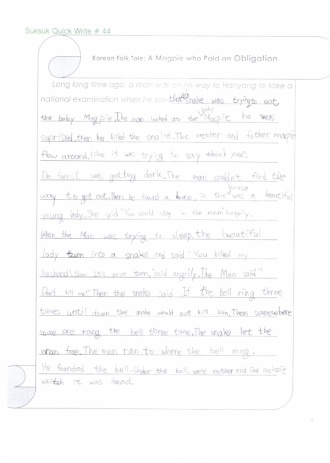 Suksuk Quick Write # 44
Korean Folk Tale: A Magpie who Paid an Obligation
Long long time ago, a man was on his way to Hanyang to take a
national examination when he saw that snake was trying to eat
the baby Magpie. The man looked at the baby Magpie he was
suprized, then he killed the snake. The mother and father magpie
flew around, like it was trying to say thank you.
The forest was getting dark. The man couldn't find the
way to get out. Then he found a house, in the house was a beautiful
young lady. She said "You could stay in the room
When the Man was trying to sleep, the beautiful
lady turn into a snake and said "You killed my
husband! said angrily. The Man said"
Don't kill me!" Then the snake said If the bell ring three
times until dawn the snake would not kill him. Then somewhere
some one rang the bell three time. The snake let the
man free. The man ran to where the bell rang.
He founded the bell. Under the bell, were mother and The magpie
which it was dead.